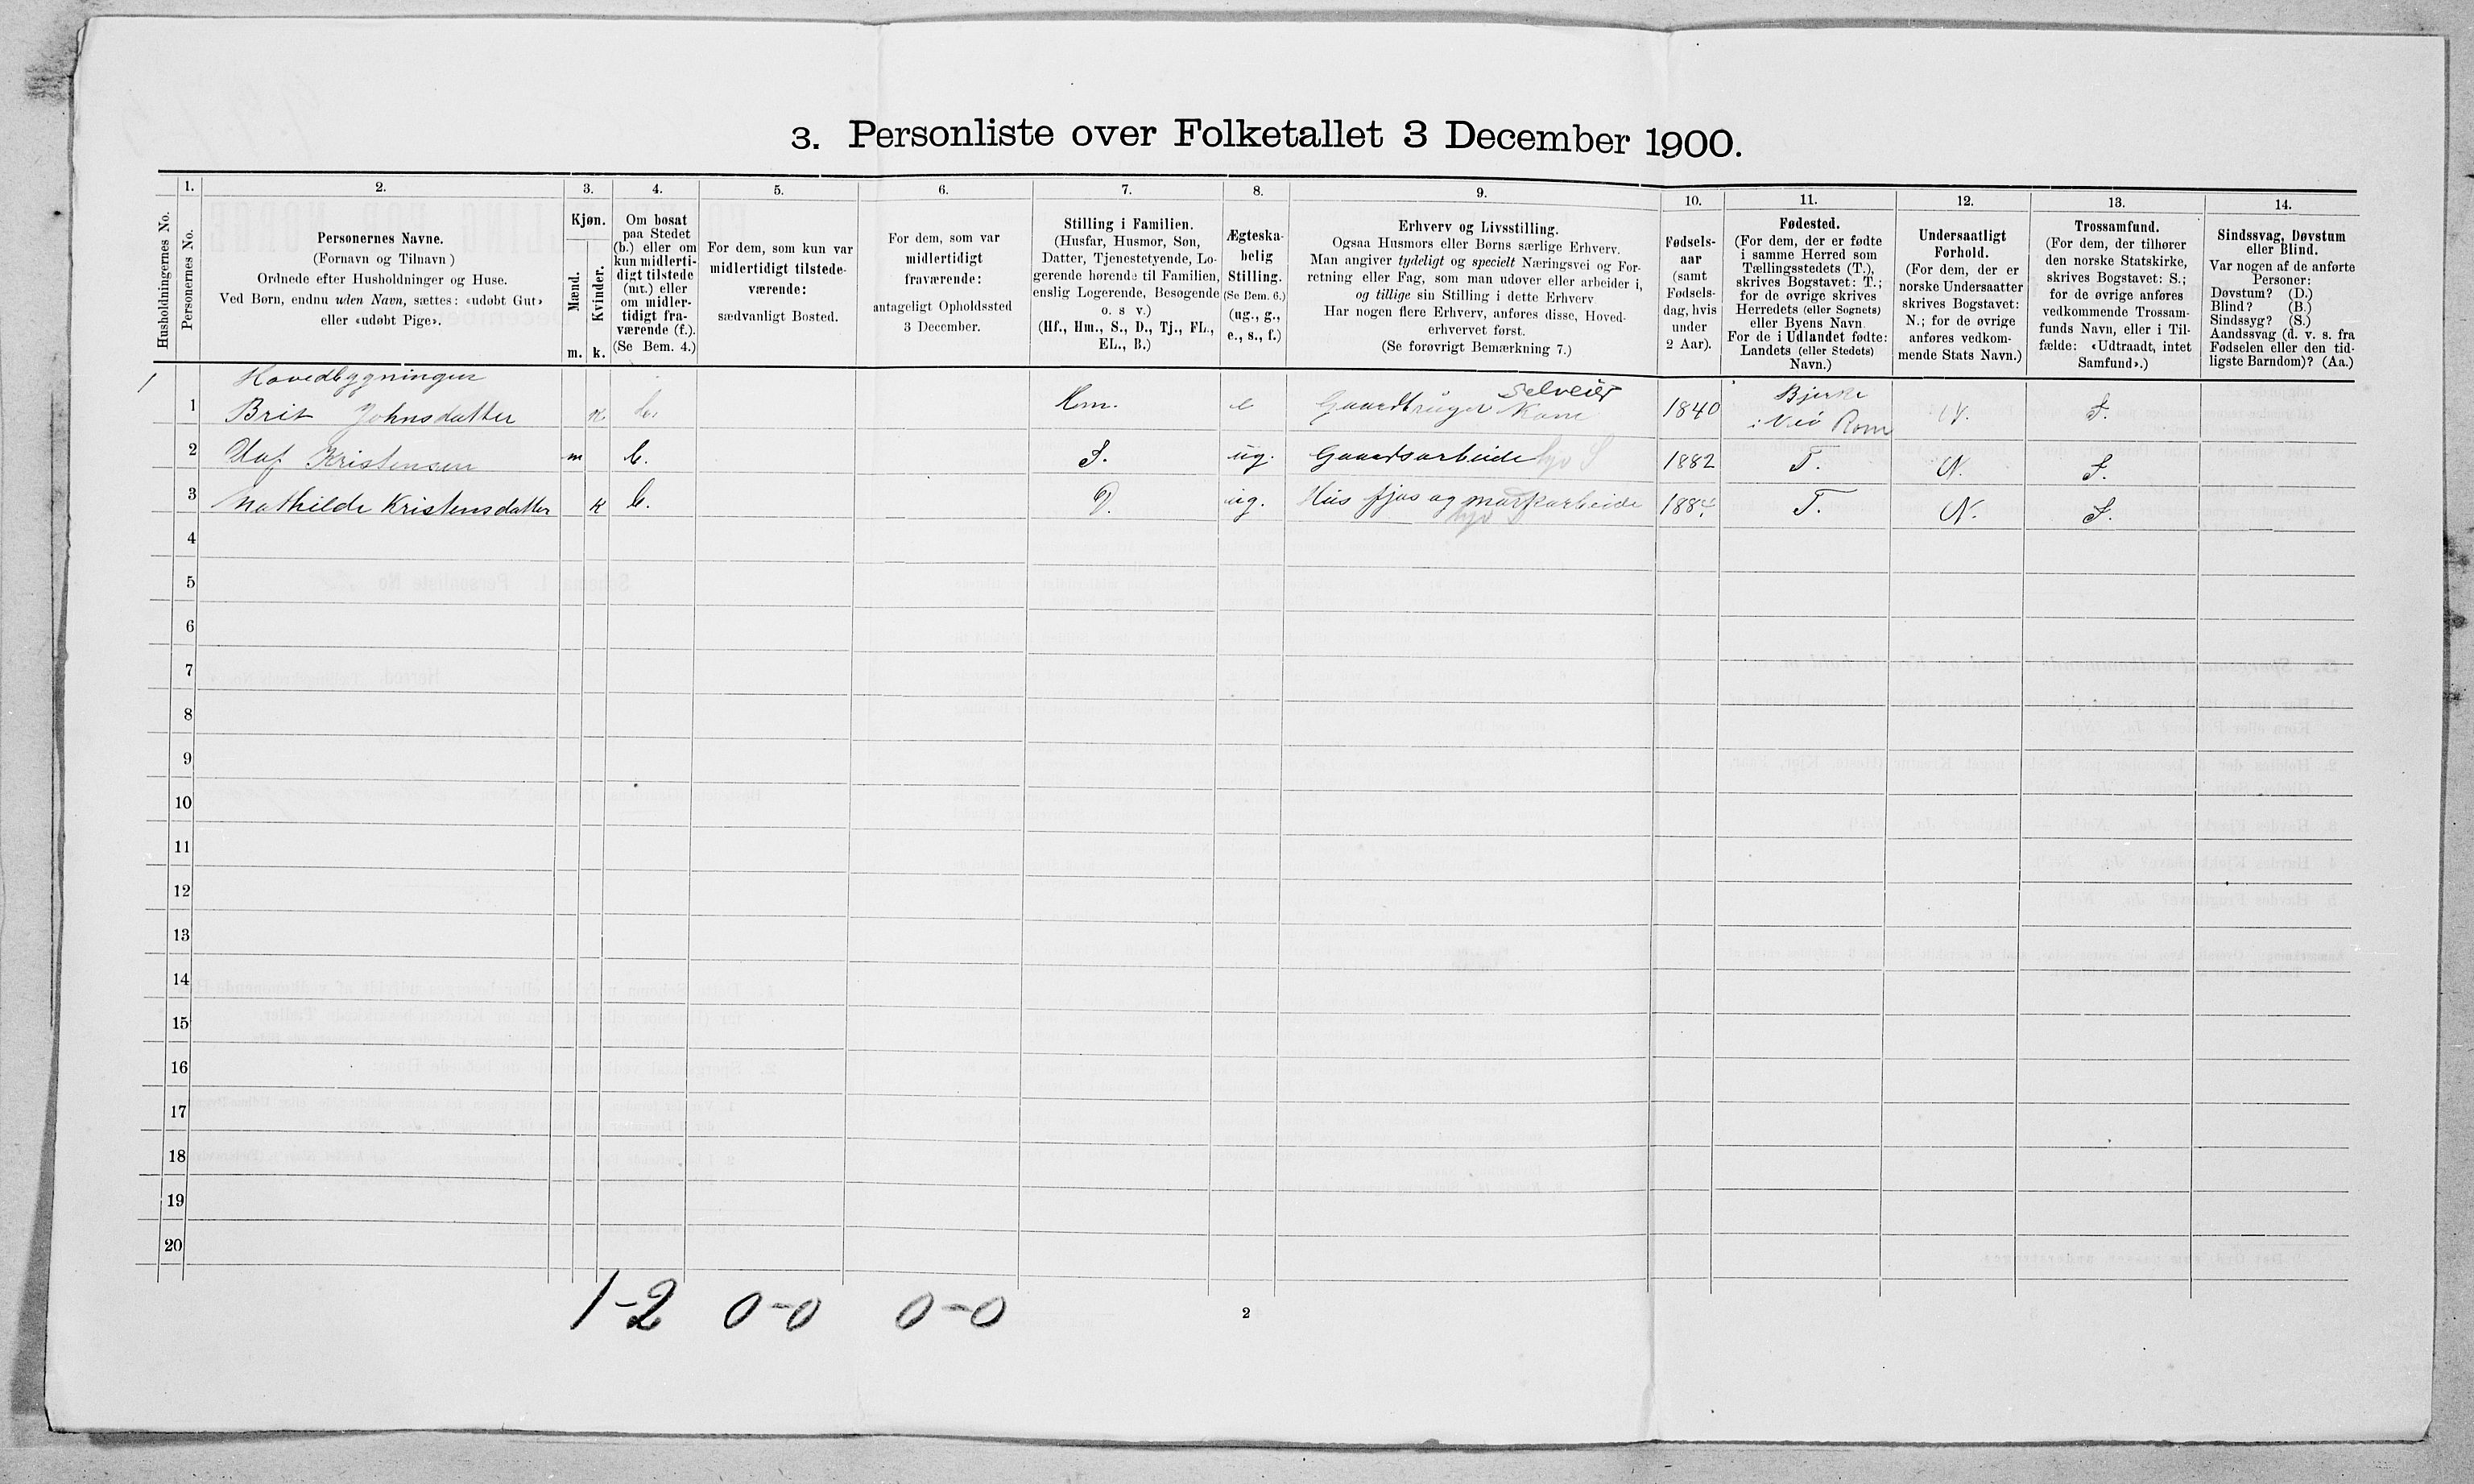 3. Personliste over Folketallet 3 December 1900.
Husholdningernes No.
1.
Personernes No.
2.
Personernes Navne.
(Fornavn og Tilnavn )
Ordnede efter Husholdninger og Huse.
Ved Børn, endnu uden Navn, sættes: «udøbt Gut»
eller «udøbt Pige».
3.
Kjøn.
Mænd.
Kvinder.
m.
k.
4.
Om bosat
paa Stedet
(b.) eller om
kun midlerti-
digt tilstede
(mt.) eller
om midler-
tidigt fra-
værende (f.).
(Se Bem. 4.)
5.
For dem, som kun var
midlertidigt tilstede-
værende:
sædvanligt Bosted.
6.
For dem, som var
midlertidigt
fraværende:
antageligt Opholdssted
3 December.
7.
Stilling i Familien.
(Husfar, Husmor, Søn,
Datter, Tjenestetyende, Lo-
gerende hørende til Familien,
enslig Logerende, Besøgende
o. s v.)
(Hf., Hm., S., D., Tj., FL.,
EL., B.)
8.
Ægteska-
belig
Stilling.
(Se Bem. 6.)
(ug., g.,
e., s., f.)
9.
Erhverv og Livsstilling.
Ogsaa Husmors eller Børns særlige Erhverv.
Man angiver tydeligt og specielt Næringsvei og For-
retning eller Fag, som man udøver eller arbeider i,
og tillige sin Stilling i dette Erhverv
Har nogen flere Erhverv, anføres disse, Hoved-
erhvervet først.
(Se forøvrigt Bemærkning 7.)
10.
Fødsels-
aar
(samt
Fødsels-
dag, hvis
under
2 Aar).
11.
Fødested.
(For dem, der er fødte
i samme Herred som
Tællingsstedets (T.),
skrives Bogstavet: T.;
for de øvrige skrives
Herredets (eller Sognets)
eller Byens Navn.
For de i Udlandet fødte:
Landets (eller Stedets)
Navn.)
12.
Undersaatligt
Forhold.
(For dem, der er
norske Undersaatter
skrives Bogstavet:
N.; for de øvrige
anføres vedkom-
mende Stats Navn.)
13.
Trossamfund.
(For dem, der tilhører
den norske Statskirke,
skrives Bogstavet: S.;
for de øvrige anføres
vedkommende Trossam-
funds Navn, eller i Til-
fælde: «Udtraadt, intet
Samfund».)
14.
Sindssvag, Døvstum
eller Blind.
Var nogen af de anførte
Personer:
Døvstum? (D.)
Blind? (B.)
Sindssyg? (S.)
Aandssvag (d. v. s. fra
Fødselen eller den tid-
ligste Barndom)? (Aa.)
1 Hovedbygningen
1 Brit Johnsdatter k b. Hm. e Gaardbruger Kone Selveier 1840 Bjerke i Veø Rom N. S.
2 Kristensen m b. S. ug. Gaardsarbeide hjp S 1882 T. N. S.
3 Mathilde Kristensdatter k b. D. ug. Hus fjøs og markarbeide T. N. S.
4
5
6
7
8
9
10
11
12
13
14
15
16
17
18
19
20
1-2 0-0 0-0
2